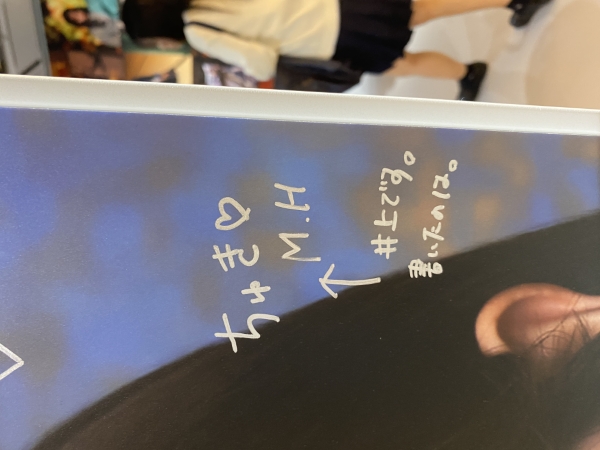 ちゅき♡
M.H
↑
井上です。
書いたのは。